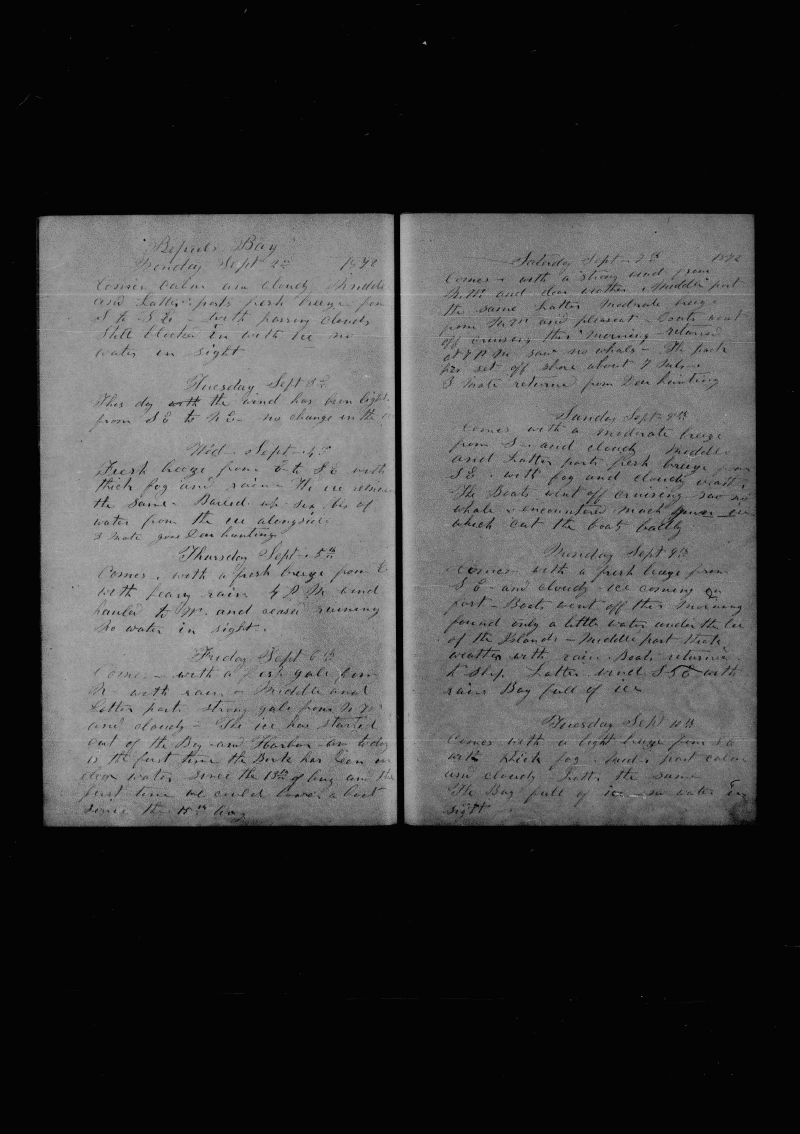 Repuls Bay
Monday Sept 2nd 1872
Comes calm and cloudy Middle
and Latter parts fresh breeze from
S to S E - with passing clouds
Still blocked in with ice no
water in sight
Tuesday Sept 3d
This day with the wind has been light
from S E to N E - no change in the
Wed - Sept - 4th
Fresh breeze from E to S E with
thick fog and rain - The ice remain
the same - Bailed up six bls of
water from the ice alongside
3 Mate gone Deer hunting
Thursday Sept - 5th
Comes - with a fresh breeze from E
with heavy rain 4 P M wind
hauled to W. and ceased raining
No water in sight -
Friday Sept 6th
Comes - with a fresh gale from
N - with rain - Middle and
Latter parts strong gale from N W
and cloudy - The ice has started
out of the Bay and Harbor and today
is the first time the Bark has been in
clear water since the 13th of Aug and the
first time we could lower a boat
since the 15th Aug
Saturday Sept - 7th 1872
Comes - with a strong wind from
and clear weather Middle part
the same Latter Moderate breeze
from N W and pleasant - Boats went
off cruising this Morning - returned
at 7 P M saw no whals - The pack
set off shore about 7
3 Mate returned from Deer hunting
Sunday Sept 8th
Comes with a moderate breeze
from S - and cloudy Middle
and Latter parts fresh breeze from
S E - with fog and cloudy
The Boats went off cruising saw no
whale - encountered much ice
which cut the boats badly
Munday Sept 9th
Comes with a fresh breeze from
S E - and cloudy - ice coming in
fast - Boats went off this Morning
found only a little water under the lee
of the Islands - Middle part thick
weather with rain Boats returned
to Ship - Latter wind S S E with
rain Bay full of ice
Tuesday Sept 10th
Comes with a light breeze from S E
with thick fog - part calm
and cloudy Latter the same
The Bay full of ice - no water in
sight -